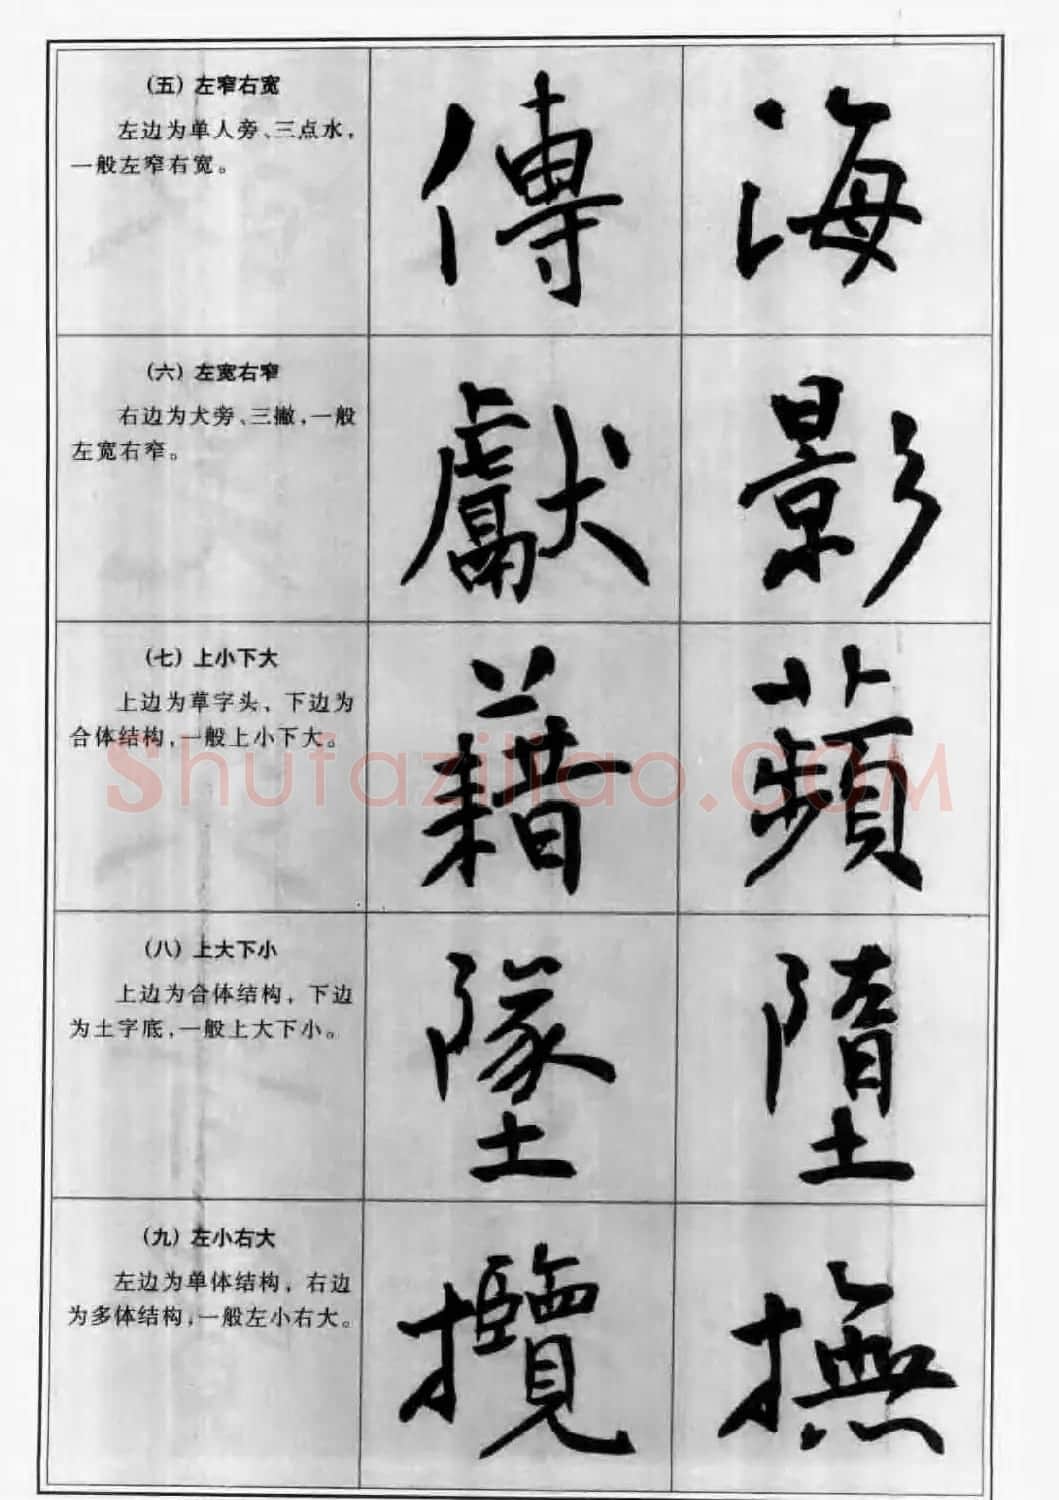 (五) 左窄右宽
左边为单人旁、三点水，
一般左窄右宽。
傳 海
(六) 左宽右窄
右边为犬旁、三撇，一般
左宽右窄。
獻 影
(七) 上小下大
上边为草字头，下边为
合体结构，一般上小下大。
藉 蘋
Shufaziliao.COM
(八) 上大下小
上边为合体结构，下边
为土字底，一般上大下小。
墜 墮
(九) 左小右大
左边为单体结构，右边
为多体结构，一般左小右大。
攬 撫